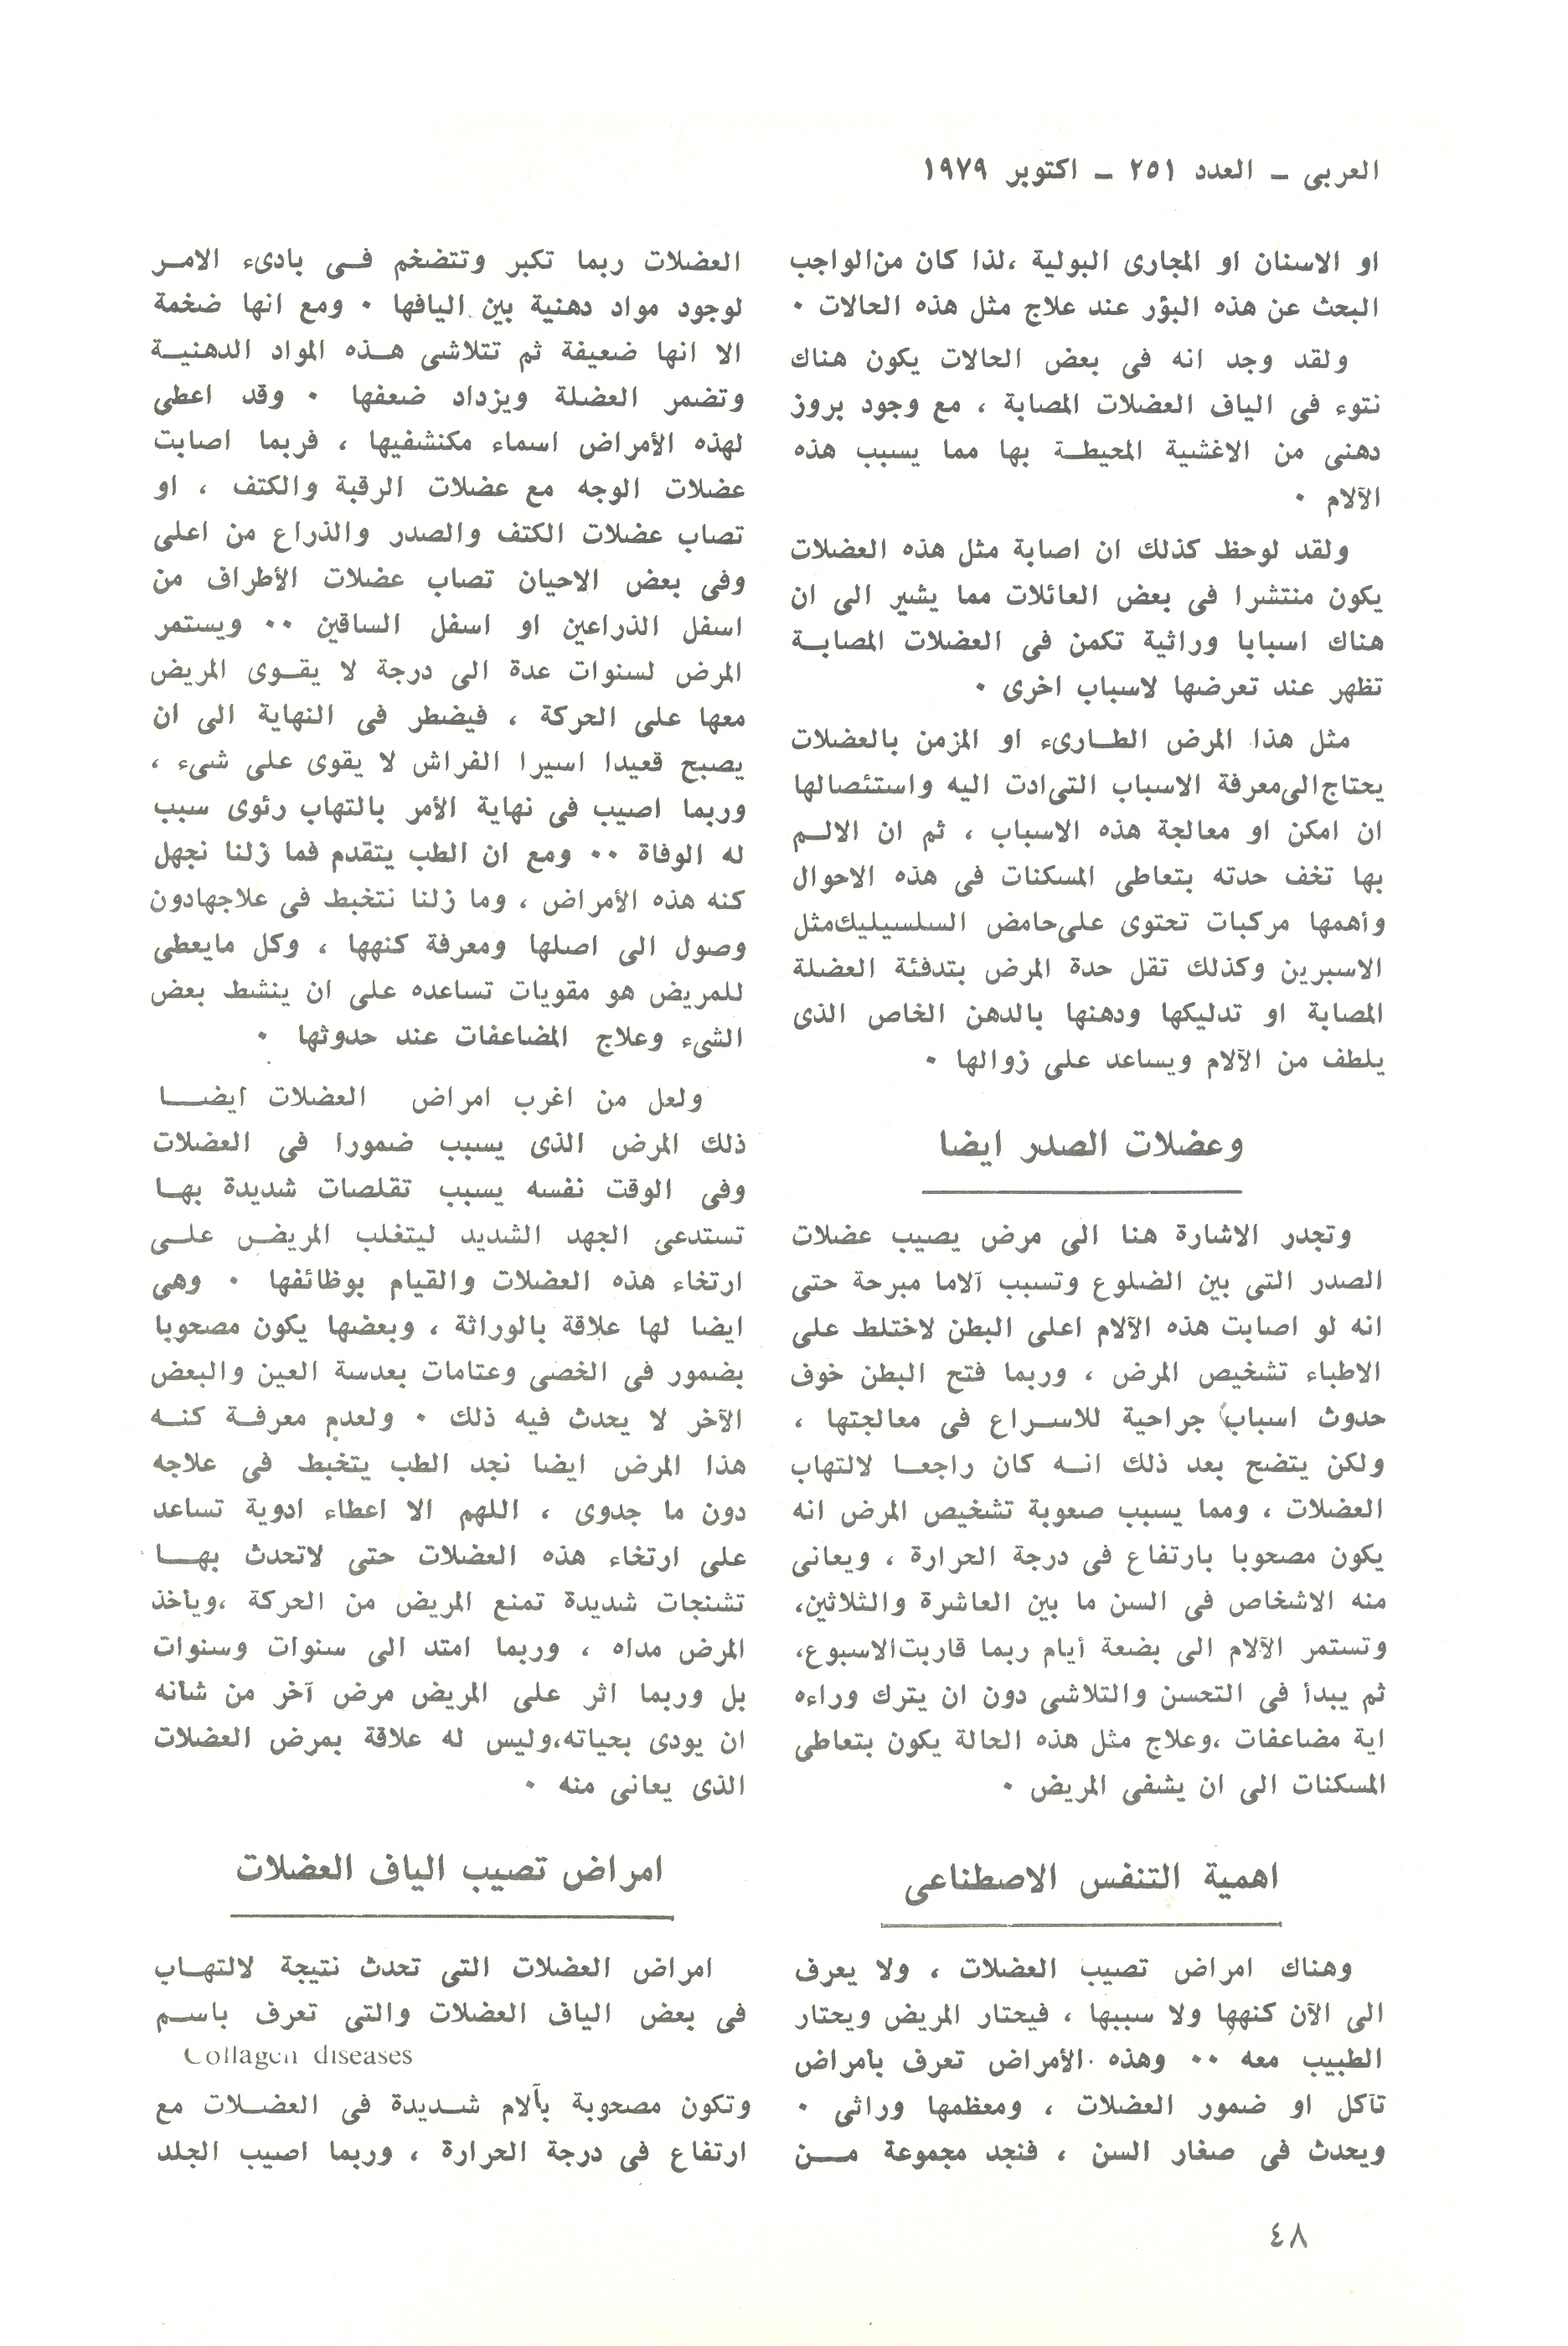 العربى ـ العدد ٢٥١ ـ اكتوبر ١٩٧٩
او الاسنان او المجارى البولية ،لذا كان من الواجب
البحث عن هذه البؤر عند علاج مثل هذه الحالات ٠
ولقد وجد انه فى بعض الحالات يكون هناك
نتوء فى الياف العضلات المصابة ، مع وجود بروز
دهنى من الاغشية المحيطة بها مما يسبب هذه
الآلام ٠
ولقد لوحظ كذلك ان اصابة مثل هذه العضلات
يكون منتشرا فى بعض العائلات مما يشير الى ان
هناك اسبابا وراثية تكمن فى العضلات المصابة
تظهر عند تعرضها لاسباب اخرى ٠
مثل هذا المرض الطارىء او المزمن بالعضلات
يحتاج الى معرفة الاسباب التى ادت اليه واستئصالها
ان امكن او معالجة هذه الاسباب ، ثم ان الالم
بها تخف حدته بتعاطى المسكنات فى هذه الاحوال
وأهمها مركبات تحتوى على حامض السلسيليك مثل
الاسبرين وكذلك تقل حدة المرض بتدفئة العضلة
المصابة او تدليكها ودهنها بالدهن الخاص الذى
يلطف من الآلام ويساعد على زوالها ٠
وعضلات الصدر ايضا
وتجدر الاشارة هنا الى مرض يصيب عضلات
الصدر التى بين الضلوع وتسبب آلاما مبرحة حتى
انه لو اصابت هذه الآلام اعلى البطن لاختلط على
الاطباء تشخيص المرض ، وربما فتح البطن خوف
حدوث اسباب جراحية للاسراع فى معالجتها ،
ولكن يتضح بعد ذلك انه كان راجعا لالتهاب
العضلات ، ومما يسبب صعوبة تشخيص المرض انه
يكون مصحوبا بارتفاع فى درجة الحرارة ، ويعانى
منه الاشخاص فى السن ما بين العاشرة والثلاثين،
وتستمر الآلام الى بضعة أيام ربما قاربت الاسبوع،
ثم يبدأ فى التحسن والتلاشى دون ان يترك وراءه
اية مضاعفات ،وعلاج مثل هذه الحالة يكون بتعاطى
المسكنات الى ان يشفى المريض ٠
اهمية التنفس الاصطناعى
وهناك امراض تصيب العضلات ، ولا يعرف
الى الآن كنهها ولا سببها ، فيحتار المريض ويحتار
الطبيب معه ٠٠ وهذه الأمراض تعرف بأمراض
تآكل او ضمور العضلات ، ومعظمها وراثى ٠
ويحدث فى صغار السن ، فنجد مجموعة من
العضلات ربما تكبر وتتضخم فى بادىء الامر
لوجود مواد دهنية بين اليافها ٠ ومع انها ضخمة
الا انها ضعيفة ثم تتلاشى هذه المواد الدهنية
وتضمر العضلة ويزداد ضعفها ٠ وقد اعطى
لهذه الأمراض اسماء مكتشفيها ، فربما اصابت
عضلات الوجه مع عضلات الرقبة والكتف ، او
تصاب عضلات الكتف والصدر والذراع من اعلى
وفى بعض الاحيان تصاب عضلات الأطراف من
اسفل الذراعين او اسفل الساقين ٠٠ ويستمر
المرض لسنوات عدة الى درجة لا يقوى المريض
معها على الحركة ، فيضطر فى النهاية الى ان
يصبح قعيدا اسيرا الفراش لا يقوى على شىء ،
وربما اصيب فى نهاية الأمر بالتهاب رئوى سبب
له الوفاة ٠٠ ومع ان الطب يتقدم فما زلنا نجهل
كنه هذه الأمراض ، وما زلنا نتخبط فى علاجها دون
وصول الى اصلها ومعرفة كنهها ، وكل مايعطى
للمريض هو مقويات تساعده على ان ينشط بعض
الشىء وعلاج المضاعفات عند حدوثها ٠
ولعل من اغرب امراض العضلات ايضا
ذلك المرض الذى يسبب ضمورا فى العضلات
وفى الوقت نفسه يسبب تقلصات شديدة بها
تستدعى الجهد الشديد ليتغلب المريض على
ارتخاء هذه العضلات والقيام بوظائفها ٠ وهى
ايضا لها علاقة بالوراثة ، وبعضها يكون مصحوبا
بضمور فى الخصى وعتامات بعدسة العين والبعض
الآخر لا يحدث فيه ذلك ٠ ولعدم معرفة كنه
هذا المرض ايضا نجد الطب يتخبط فى علاجه
دون ما جدوى ، اللهم الا اعطاء ادوية تساعد
على ارتخاء هذه العضلات حتى لاتحدث بها
تشنجات شديدة تمنع المريض من الحركة ،ويأخذ
المرض مداه ، وربما امتد الى سنوات وسنوات
بل وربما اثر على المريض مرض آخر من شأنه
ان يودى بحياته،وليس له علاقة بمرض العضلات
الذى يعانى منه ٠
امراض تصيب الياف العضلات
امراض العضلات التى تحدث نتيجة لالتهاب
فى بعض الياف العضلات والتى تعرف باسم
Collagen diseases
وتكون مصحوبة بآلام شديدة فى العضلات مع
ارتفاع فى درجة الحرارة ، وربما اصيب الجلد
٤٨